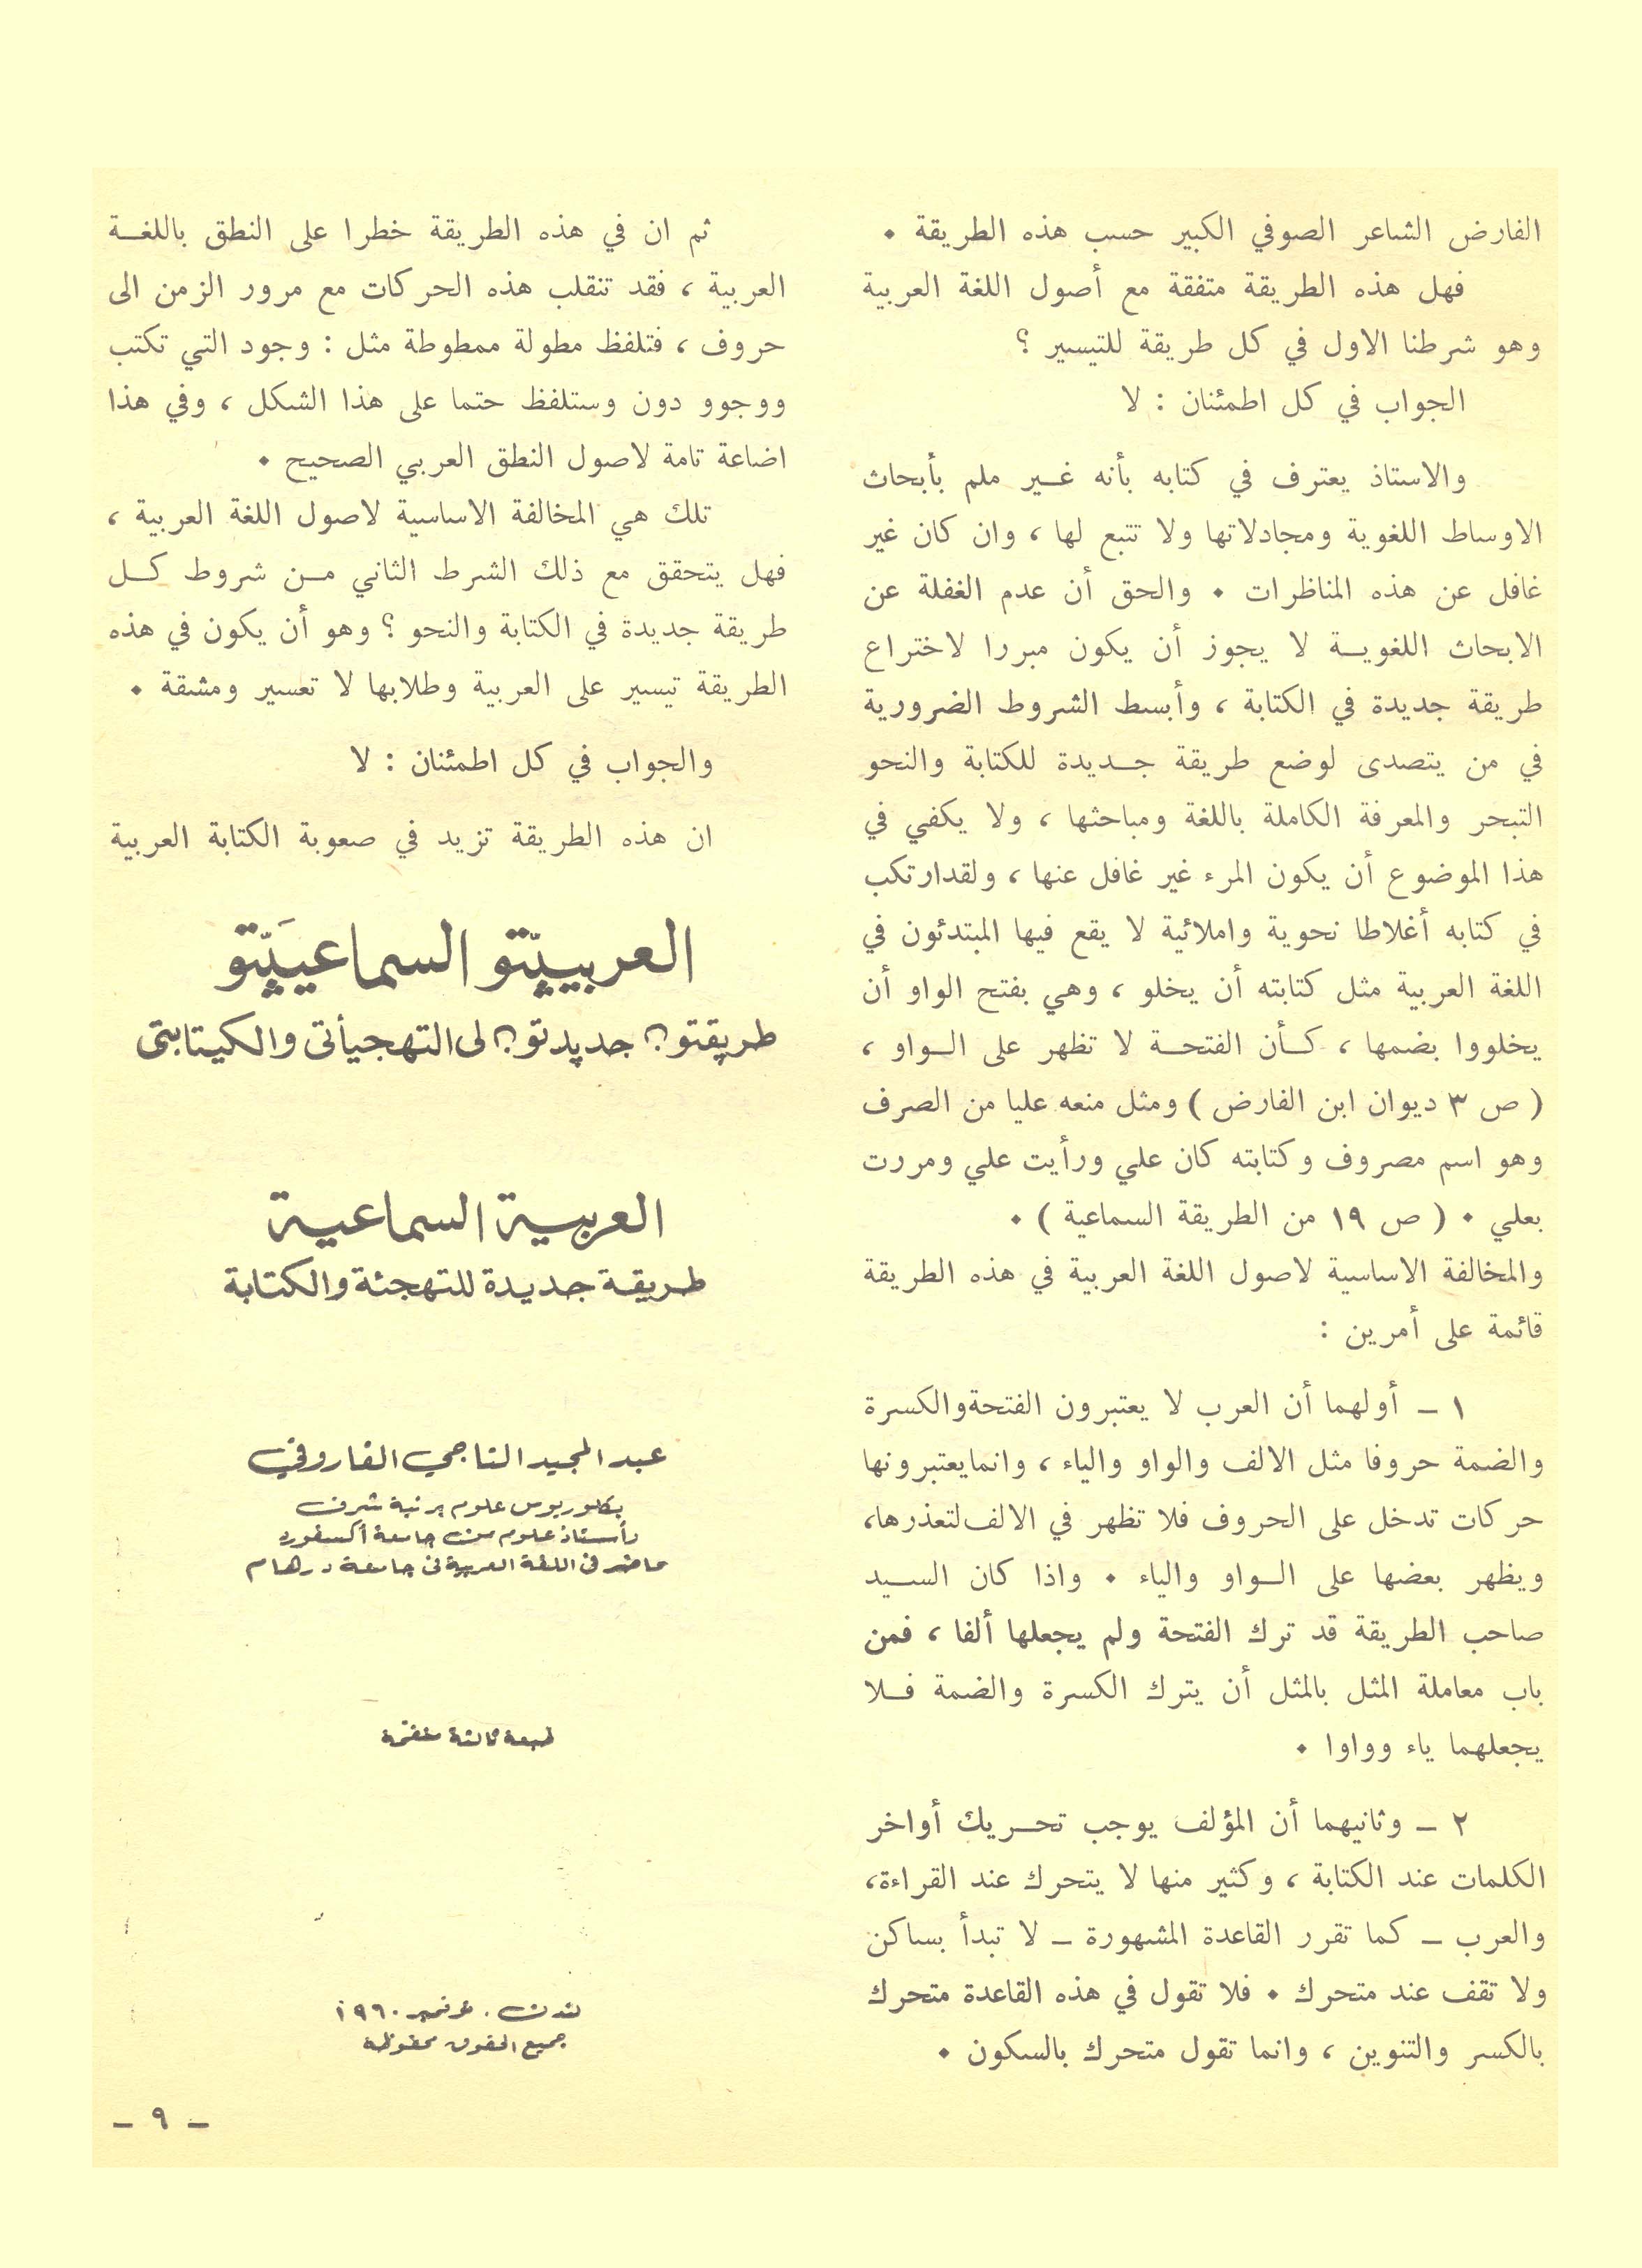 الفارض الشاعر الصوفي الكبير حسب هذه الطريقة ٠
فهل هذه الطريقة متفقة مع أصول اللغة العربية
وهو شرطنا الاول في كل طريقة للتيسير ؟
الجواب في كل اطمئنان : لا
والاستاذ يعترف في كتابه بأنه غير ملم بأبحاث
الاوساط اللغوية ومجادلاتها ولا تتبع لها ، وان كان غير
غافل عن هذه المناظرات ٠ والحق أن عدم الغفلة عن
الابحاث اللغوية لا يجوز أن يكون مبررا لاختراع
طريقة جديدة في الكتابة ، وأبسط الشروط الضرورية
في من يتصدى لوضع طريقة جديدة للكتابة والنحو
التبحر والمعرفة الكاملة باللغة ومباحثها ، ولا يكفي في
هذا الموضوع أن يكون المرء غير غافل عنها ، ولقدارتكب
في كتابه أغلاطا نحوية واملائية لا يقع فيها المبتدئون في
اللغة العربية مثل كتابته أن يخلو ، وهي بفتح الواو أن
يخلووا بضمها ، كأن الفتحة لا تظهر على الواو ،
( ص ٣ ديوان ابن الفارض ) ومثل منعه عليا من الصرف
وهو اسم مصروف وكتابته كان علي ورأيت علي ومررت
بعلي ٠ ( ص ١٩ من الطريقة السماعية ) ٠
والمخالفة الاساسية لاصول اللغة العربية في هذه الطريقة
قائمة على أمرين :
١ – أولهما أن العرب لا يعتبرون الفتحةوالكسرة
والضمة حروفا مثل الالف والواو والياء ، وانمايعتبرونها
حركات تدخل على الحروف فلا تظهر في الالف لتعذرها،
ويظهر بعضها على الواو والياء ٠ واذا كان السيد
صاحب الطريقة قد ترك الفتحة ولم يجعلها ألفا ، فمن
باب معاملة المثل بالمثل أن يترك الكسرة والضمة فلا
يجعلهما ياء وواوا ٠
٢ – وثانيهما أن المؤلف يوجب تحريك أواخر
الكلمات عند الكتابة ، وكثير منها لا يتحرك عند القراءة،
والعرب – كما تقرر القاعدة المشهورة – لا تبدأ بساكن
ولا تقف عند متحرك ٠ فلا تقول في هذه القاعدة متحرك
بالكسر والتنوين ، وانما تقول متحرك بالسكون ٠
ثم ان في هذه الطريقة خطرا على النطق باللغة
العربية ، فقد تنقلب هذه الحركات مع مرور الزمن الى
حروف ، فتلفظ مطولة ممطوطة مثل : وجود التي تكتب
ووجوو دون وستلفظ حتما على هذا الشكل ، وفي هذا
اضاعة تامة لاصول النطق العربي الصحيح ٠
تلك هي المخالفة الاساسية لاصول اللغة العربية ،
فهل يتحقق مع ذلك الشرط الثاني من شروط كل
طريقة جديدة في الكتابة والنحو ؟ وهو أن يكون في هذه
الطريقة تيسير على العربية وطلابها لا تعسير ومشقة ٠
والجواب في كل اطمئنان : لا
ان هذه الطريقة تزيد في صعوبة الكتابة العربية
العربيپّتو السماعيپَّتو
جديدتو لى التهجيأتى والكيتابتى
العربية السماعية
طريقة جديدة للتهجئة والكتابة
عبد المجيد التاجي الفاروقي
بكلوريوس علوم برتبة شرف
وأستاذ علوم من جامعة أكسفورد
محاضر في اللغة العربية في جامعة درهام
طبعة ثالثة منقحة
لندن . نوفمبر ١٩٦٠
جميع الحقوق محفوظة
– ٩ –